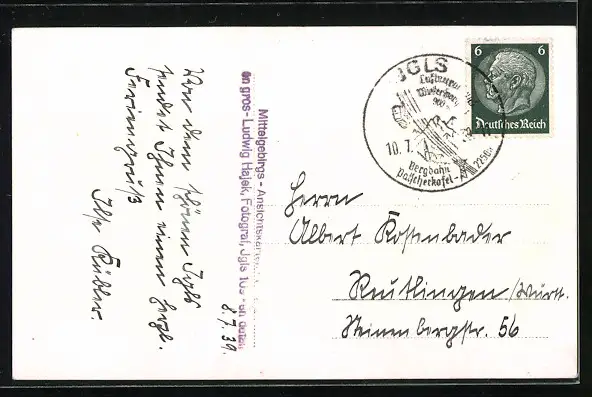 Von dem schönen Igls
sendet Ihnen einen herzl.
Feriengruß
Ilse Kübler.
8.7.39.
Mittelgebirgs - Ansichtskarten
en gros - Ludwig Hajek, Fotograf, Jgls 105 - en detail
JGLS
Luftkurort
Wintersport
900
10.7.
Bergbahn
Patscherkofel
6 6
Deutsches Reich
Herrn
Albert Kostenbader
Reutlingen /Württ.
Steinenbergstr. 56